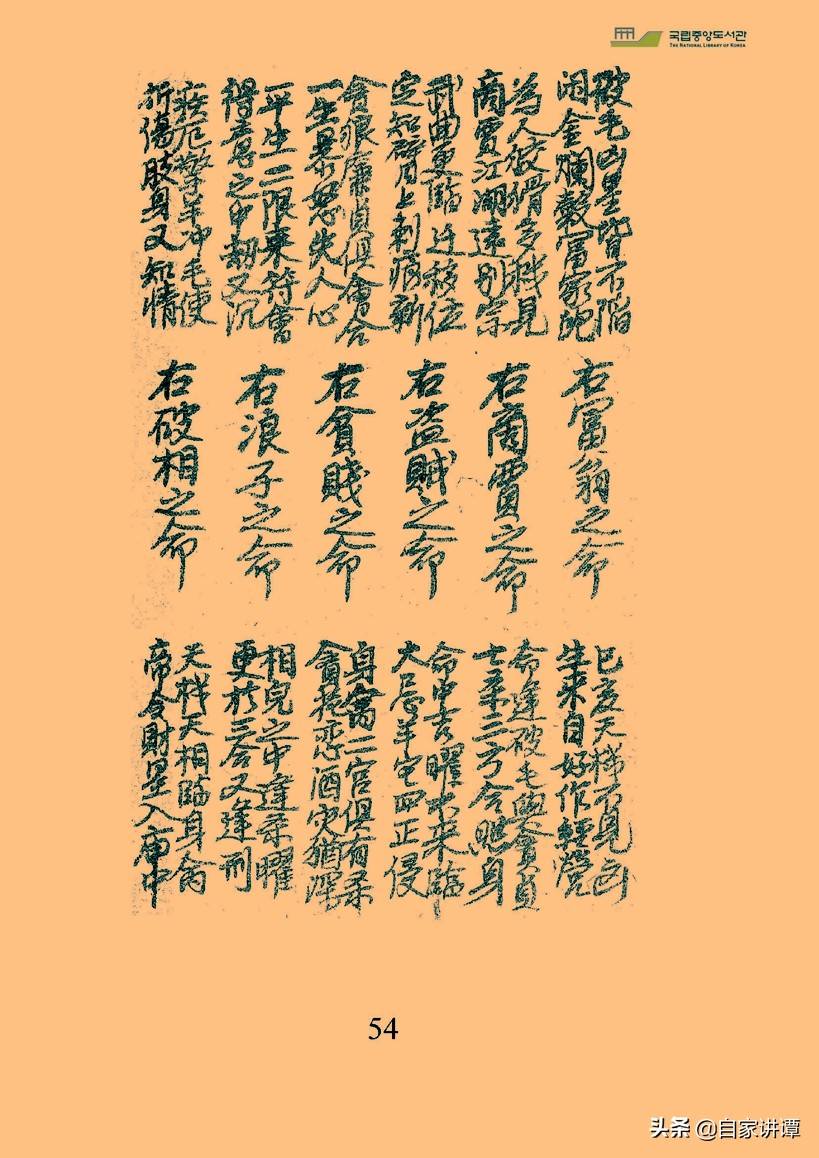 국립중앙도서관
THE NATIONAL LIBRARY OF KOREA
破毛凶星皆不陷
金爛穀富家
為人狡猾多機見
商賈江湖遠別宗
武曲更臨迁移位
定知臂上刺痕新
貪狼廉貞俱會合
一生暴怒失人心
平生二限来符會
得意之中却又沉
疾厄擎羊冲毛使
折傷肢身又知情
右富翁之命
右商賈之命
右盗賊之命
右貧賤之命
右浪子之命
右破相之命
巳亥天梯不見凶
生来自好作經營
命逢破毛與貪貞
七杀三方合照身
命中吉曜不来臨
火忌羊它四正侵
身命二宫俱有杀
貪花恋酒灾猶深
相皃之中逢杀曜
更於三合又逢刑
天機天相臨身命
帝令財星入庙中
54
头条 @自家讲谭